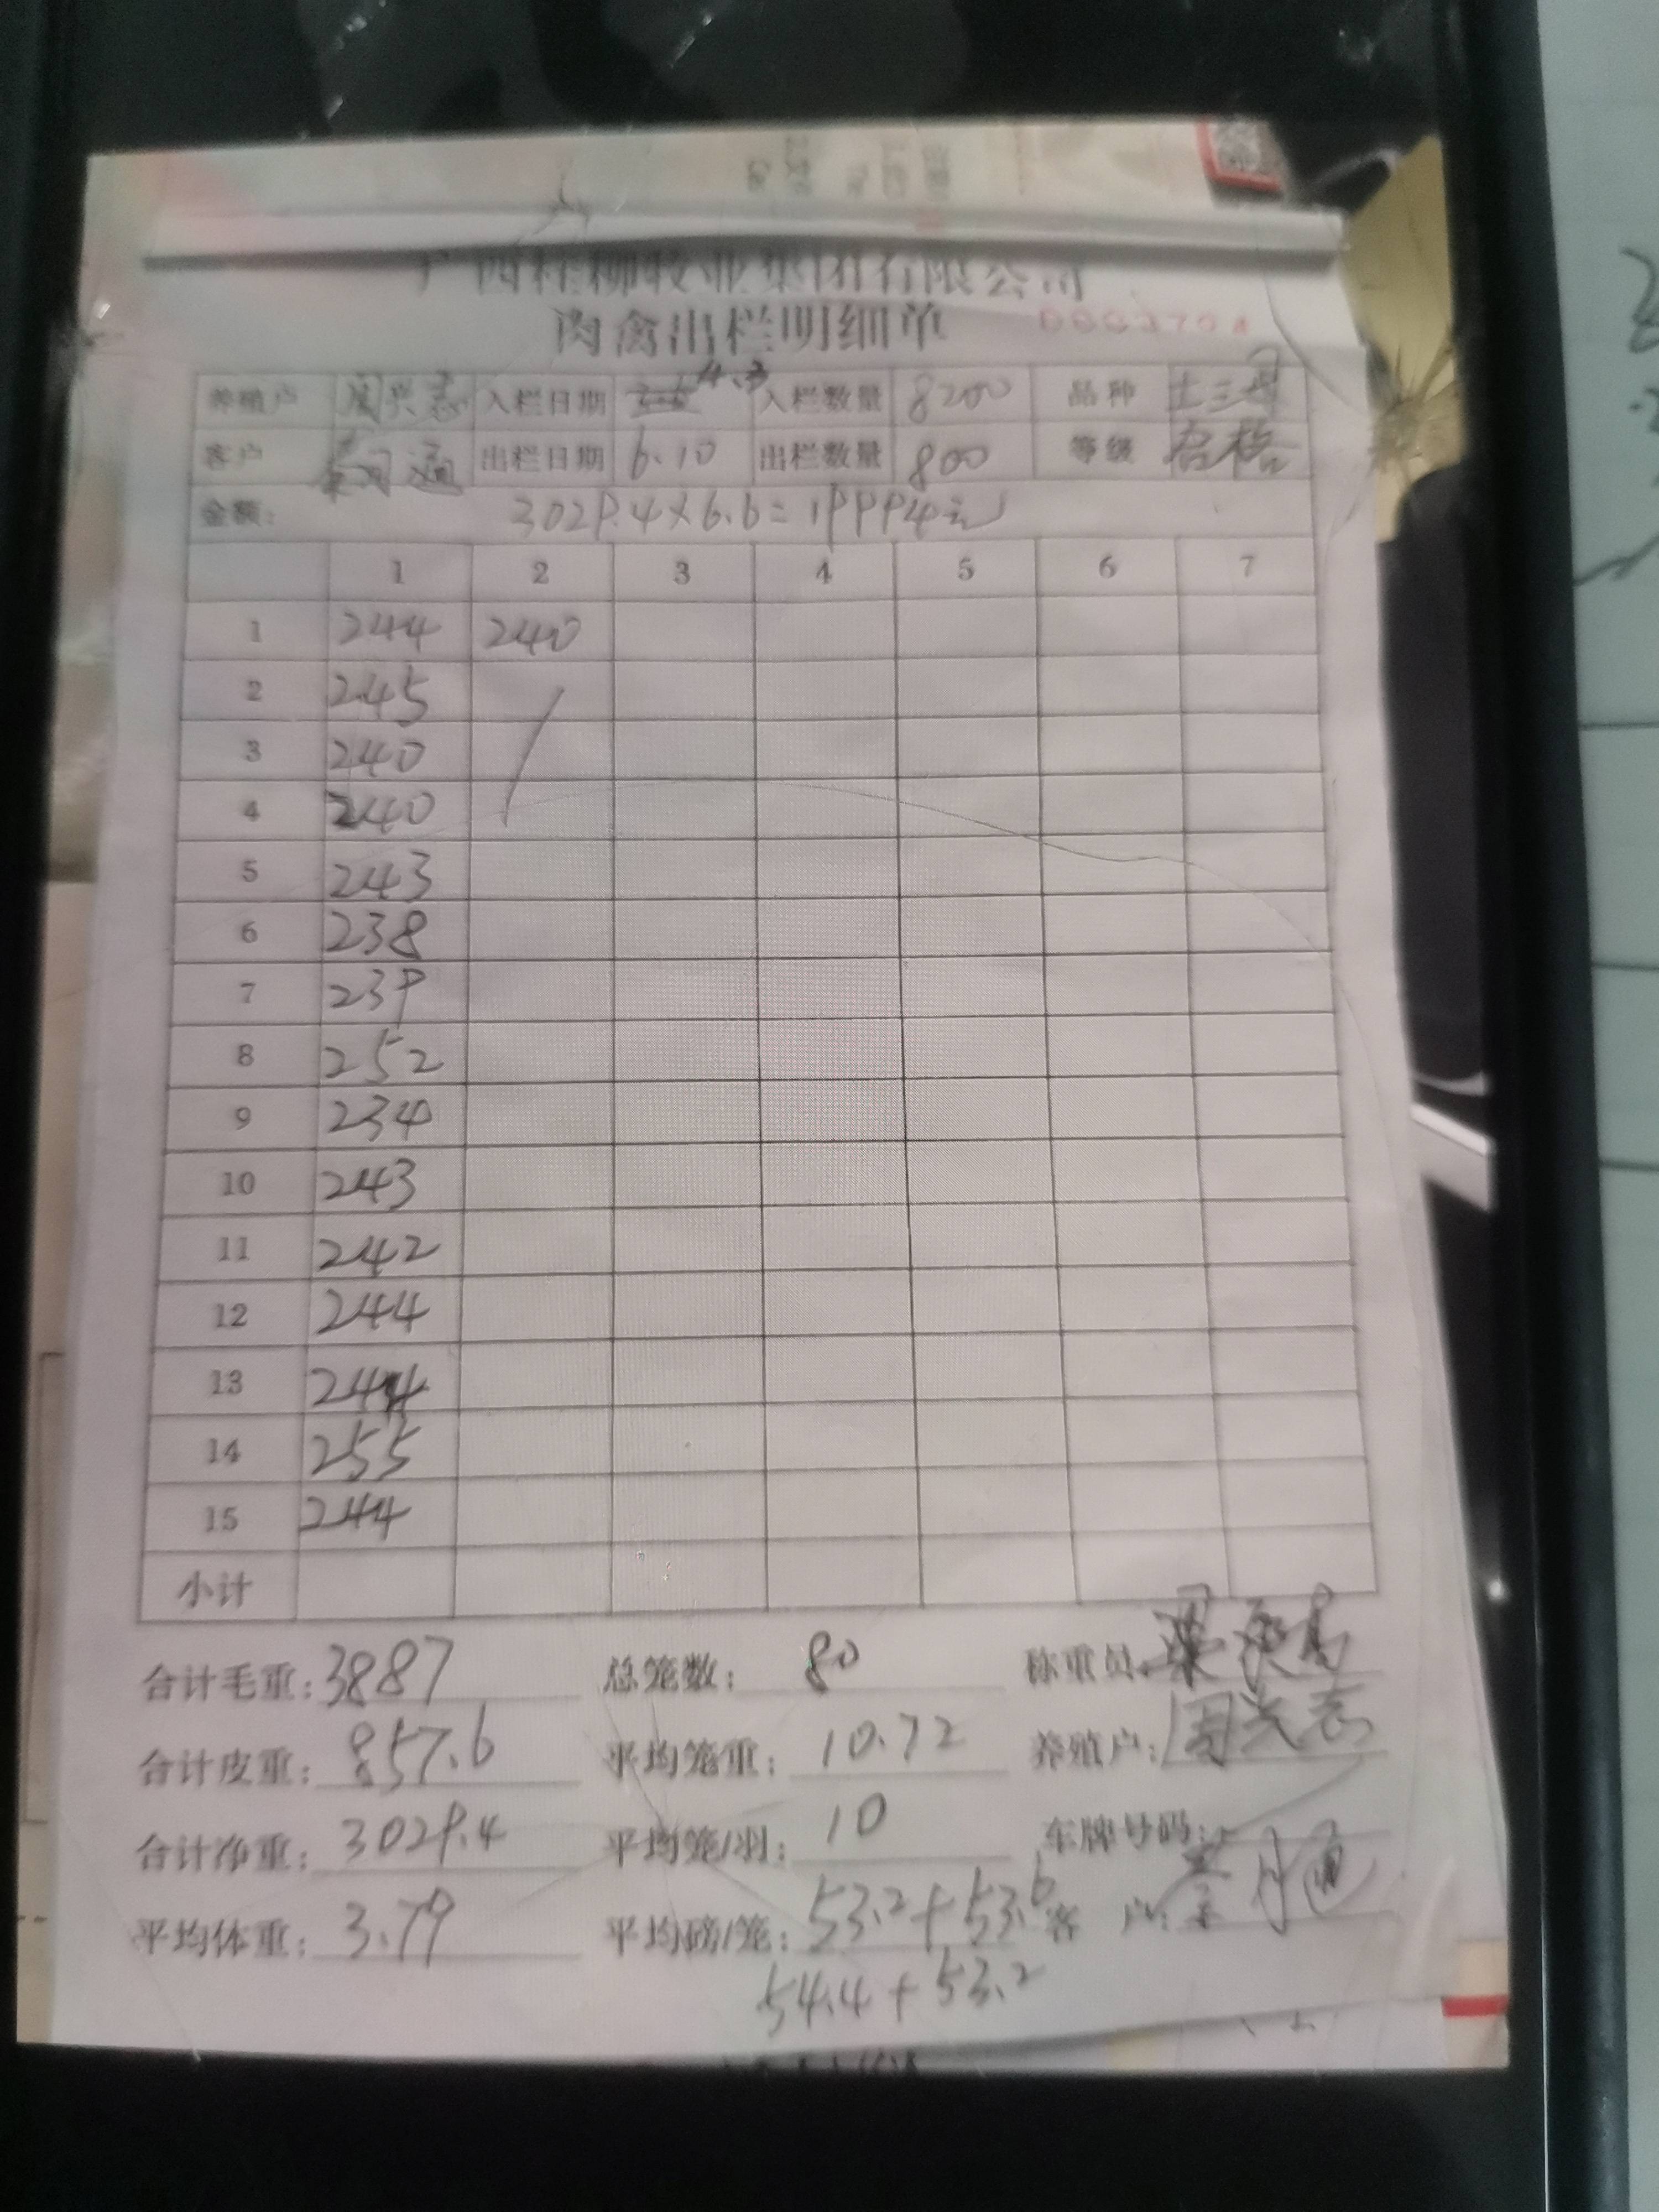 广西桂柳牧业集团有限公司
肉禽出栏明细单
养殖户 周兴志 入栏日期 4.3 入栏数量 8200 品种 土三黑
客户 出栏日期 6.10 出栏数量 800 等级 合格
金额: 3029.4×6.6=19994元
1 2 3 4 5 6 7
1 244 240
2 245
3 240
4 240
5 243
6 238
7 239
8 252
9 234
10 243
11 242
12 244
13 244
14 255
15 244
小计
合计毛重: 3887 总笼数: 80 称重员:
合计皮重: 857.6 平均笼重: 10.72 养殖户: 周兴志
合计净重: 3029.4 平均笼/羽: 10 车牌号码:
平均体重: 3.79 平均磅/笼: 53.2+53.6 客户:
54.4+53.2